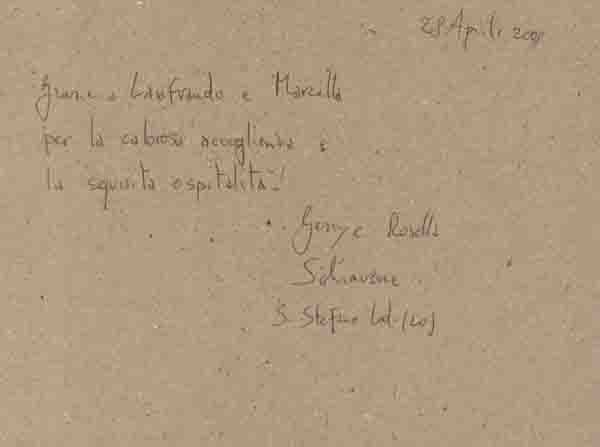 Aprile
Grazie a Lanfranco e Marcella
per la calorosa accoglienza e
la squisita ospitalità!
e Rosella
Schiavone
S. Stefano Lod. (LO)